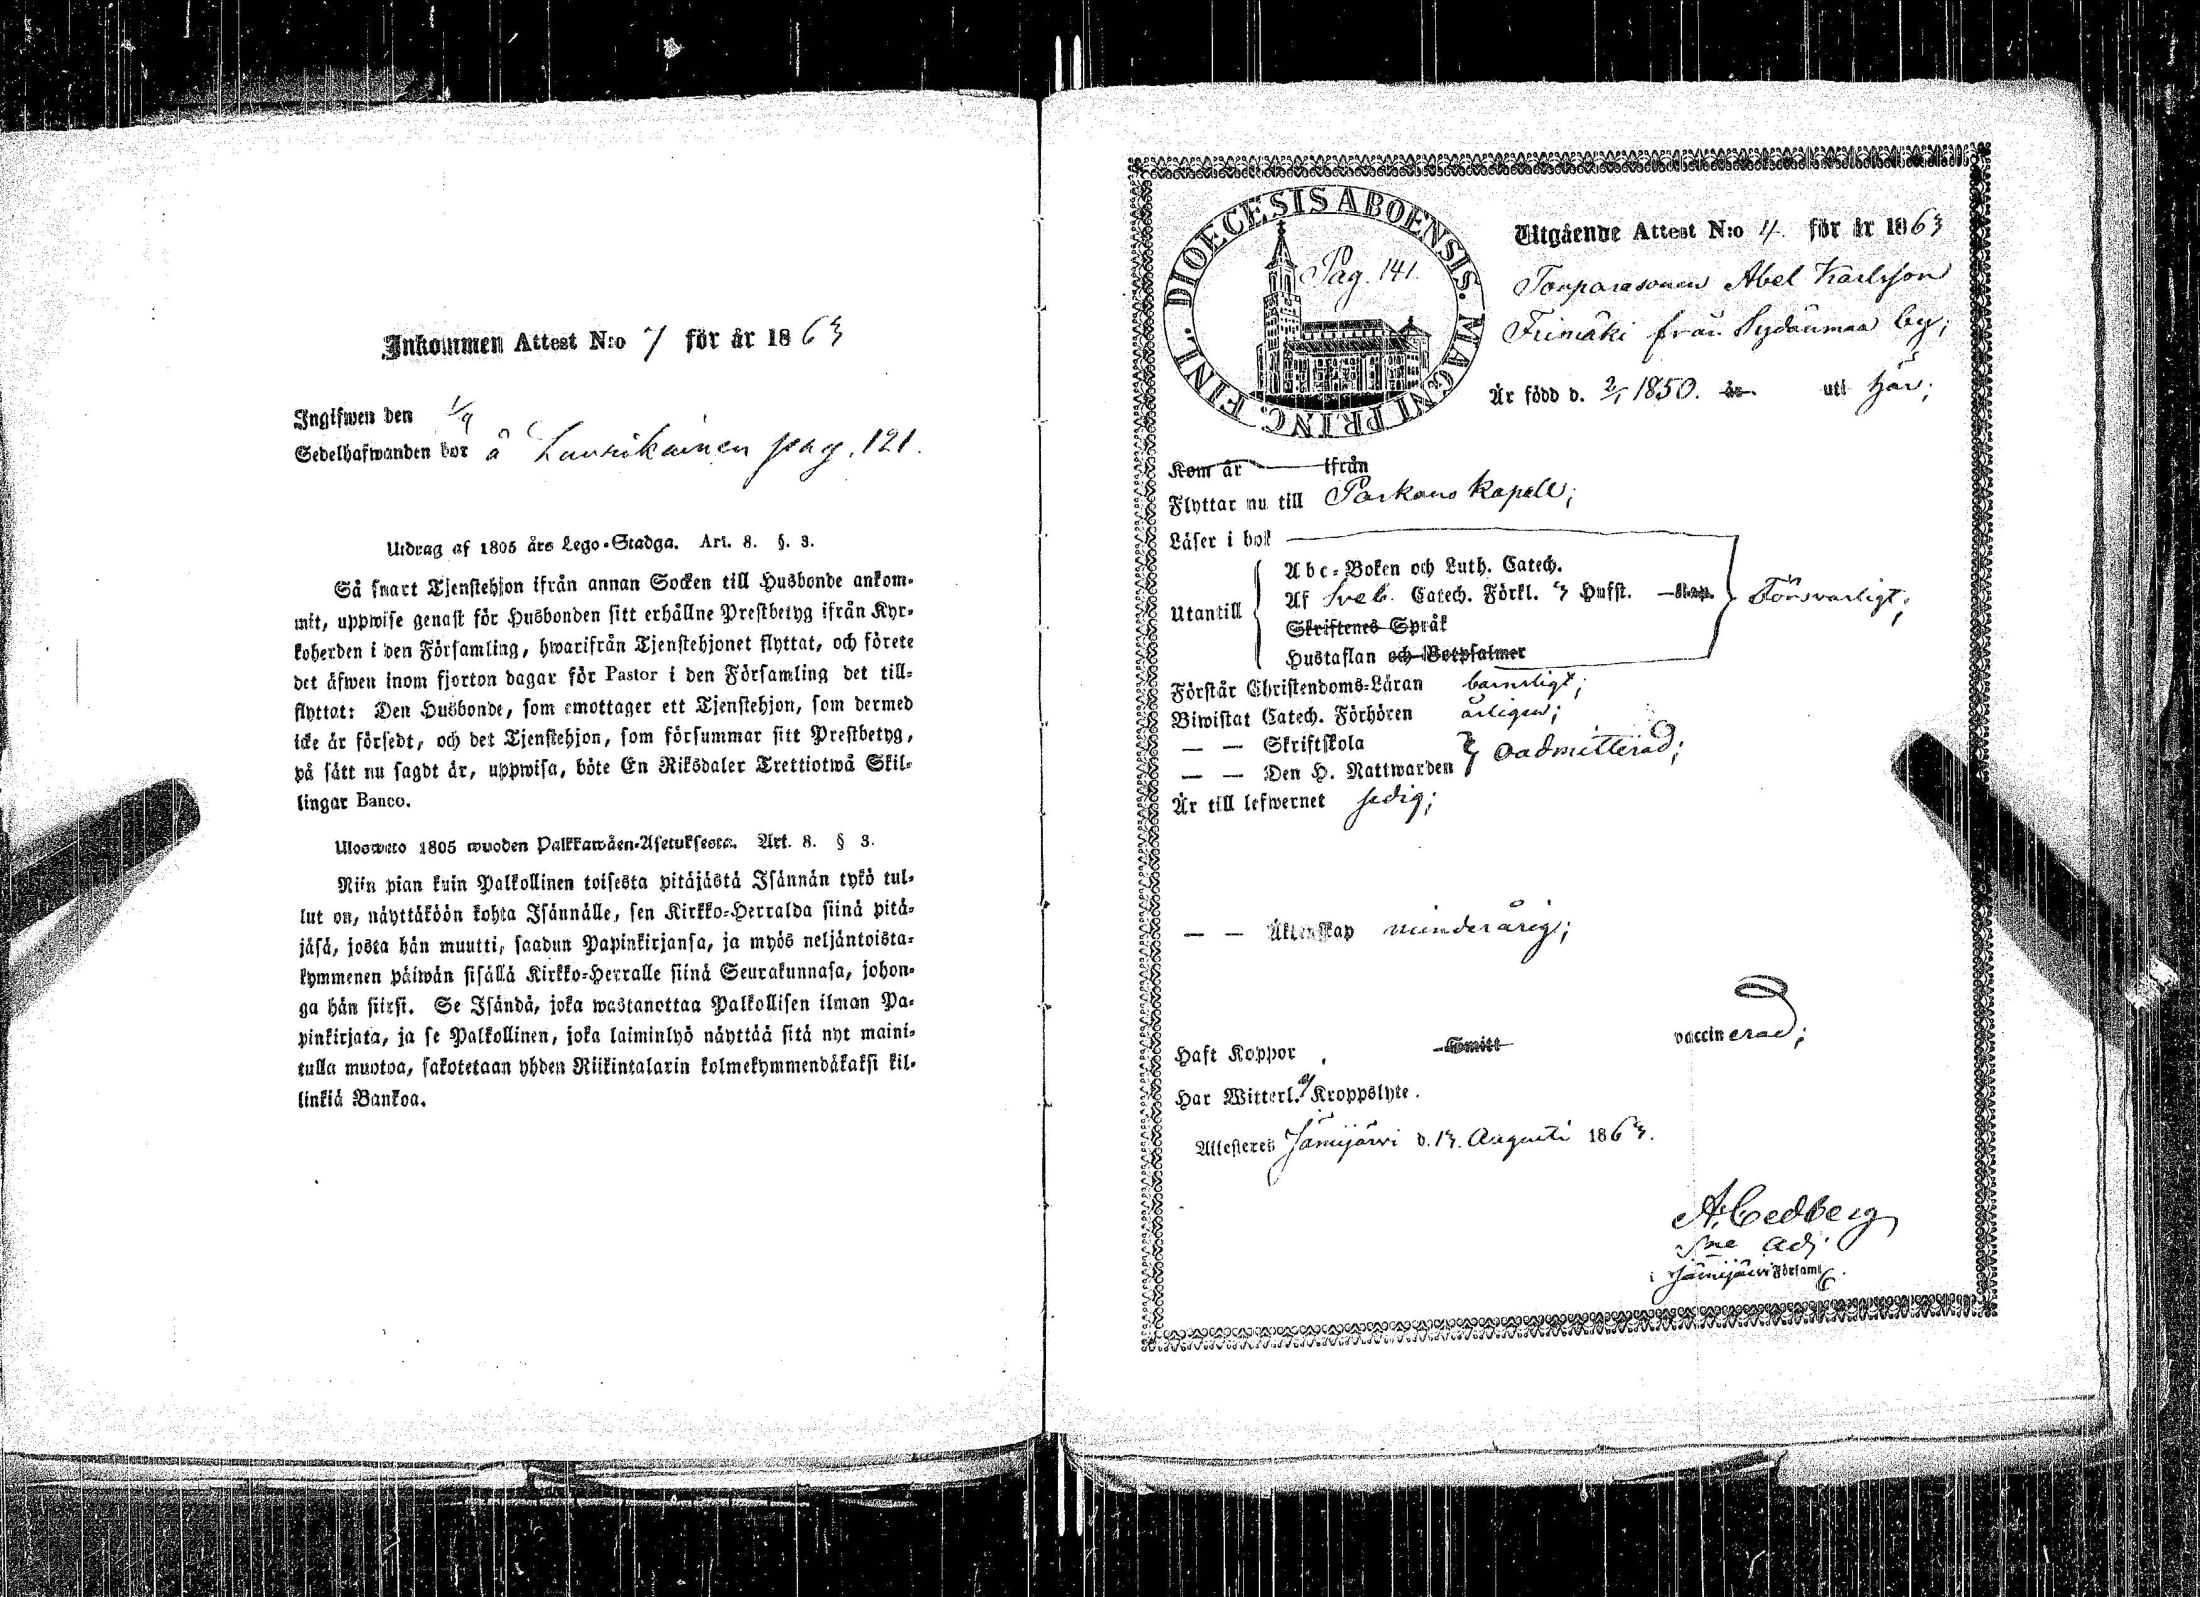 Inkommen Attest N:o 7 för år 1863
Ingifwen den 1/9
Sedelhafwanden bor å Laurikainen pag. 121.
Utdrag af 1805 års Lego-Stadga. Art. 8. §. 3.
Så snart Tjenstehjon ifrån annan Socken till Husbonde ankom-
mit, uppwise genast för Husbonden sitt erhållne Prestbetyg ifrån Kyr-
koherden i den Församling, hwarifrån Tjenstehjonet flyttat, och förete
det äfwen inom fjorton dagar för Pastor i den Församling det till-
flyttat: Den Husbonde, som emottager ett Tjenstehjon, som dermed
icke är försedt, och det Tjenstehjon, som försummar sitt Prestbetyg,
på sätt nu sagdt är, uppwisa, böte En Riksdaler Trettiotwå Skil-
lingar Banco.
Uloswето 1805 wuoden Palkkawäen-Asetuksesta. Art. 8. § 3.
Niin pian kuin Palkollinen toisesta pitäjästä Isännän tykö tul-
lut on, näyttäköön kohta Isännälle, sen Kirkko-Herralda siinä pitä-
jäsä, josta hän muutti, saadun Papinkirjansa, ja myös neljäntoista-
kymmenen päiwän sisällä Kirkko-Herralle siinä Seurakunnasa, johon-
ga hän siirsi. Se Isändä, joka wastanottaa Palkollisen ilman Pa-
pinkirjata, ja se Palkollinen, joka laiminlyö näyttää sitä nyt maini-
tulla muotoa, sakotetaan yhden Riikintalarin kolmekymmendäkaksi kil-
linkiä Bankoa.
DIOECESIS ABOENSIS. MAGNI PRINC. FINL.
Pag. 141.
Utgående Attest N:o 4. för år 1863
Torparesonen Abel Karlsson
Frimäki från Sydänmaa by;
Är född d. 2/1 1850. år uti här;
Kom år ifrån
Flyttar nu till Parkano Kapell;
Läser i bok
Abc-Boken och Luth. Catech.
Utantill Af Sveb. Catech. Förkl. 3 Hufst. Kap. Försvarligt;
Skriftenes Språk
Hustaflan och Botpsalmer
Förstår Christendoms-Läran barnsligt;
Biwistat Catech. Förhören årligen;
— — Skriftskola
— — Den H. Nattwarden oadmitterad;
Är till lefwernet sedig;
— — Äktenskap minderårig;
Haft Koppor Smitt vaccinerad;
Har Witterl. ej Kroppslyte.
Attesteres Jämijärwi d. 13. Augusti 1863.
A. Cedberg
adj.
i Jämijärwi Församl.